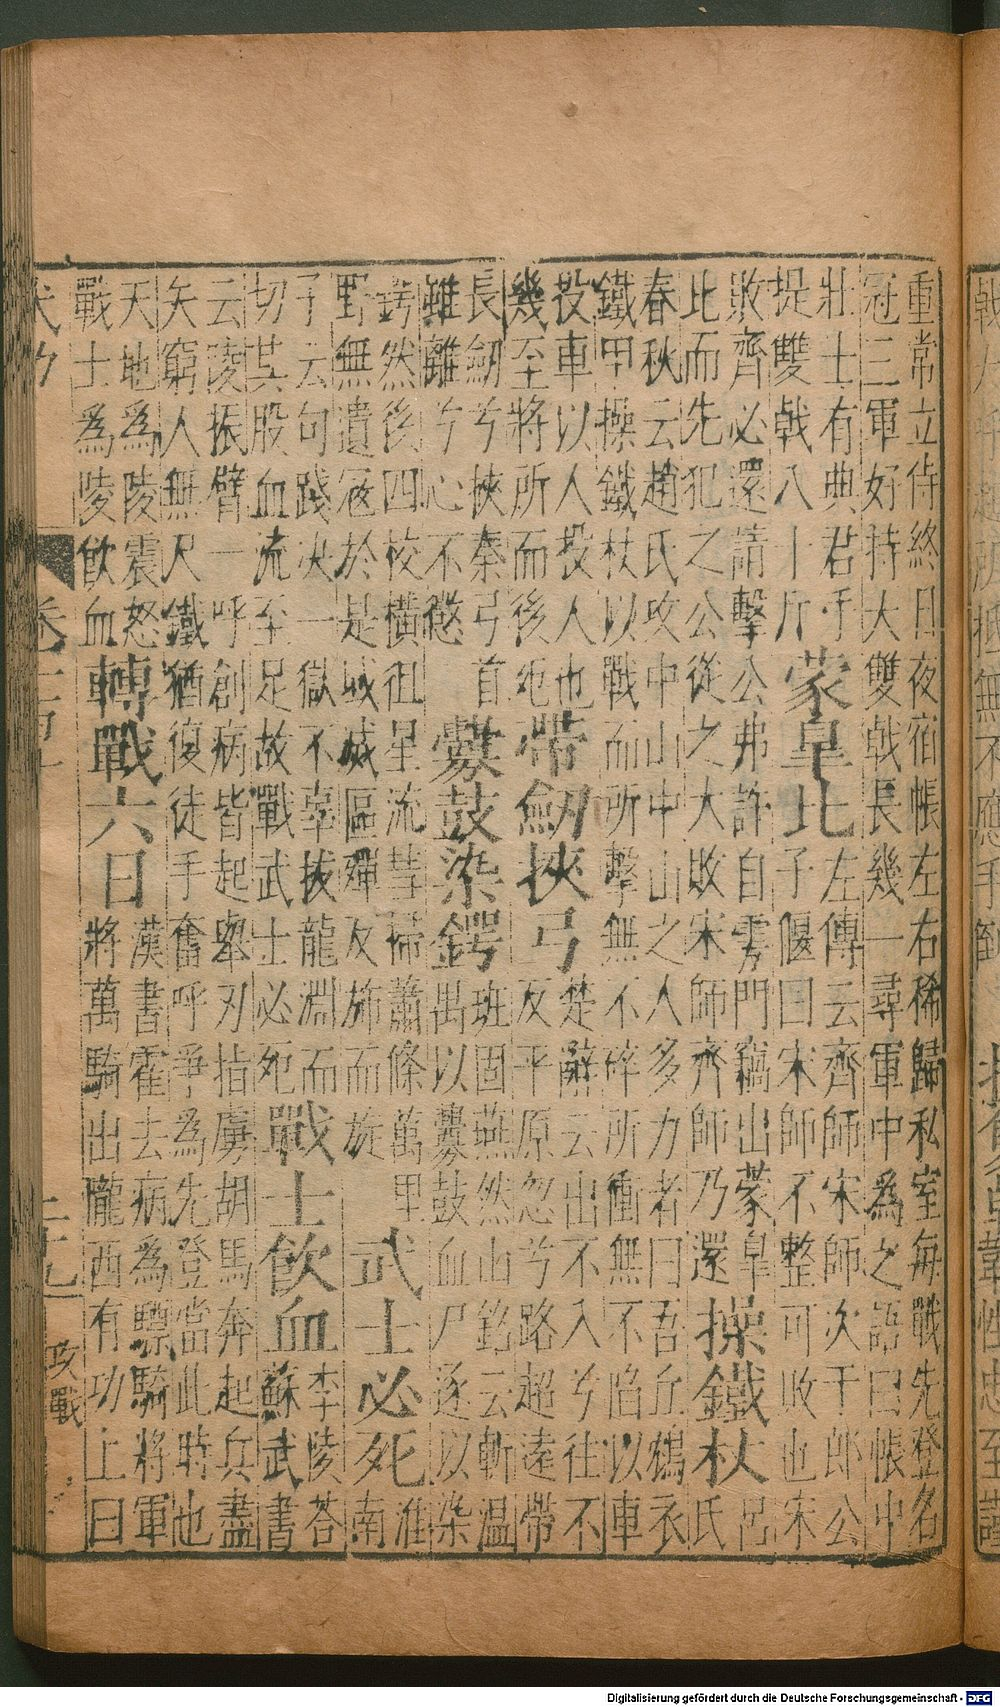 重常立侍終日夜宿帳左右稀歸私室每戰先登名
冠三軍好持大雙戟長幾一尋軍中為之語曰帳中
壯士有典君手
提雙戟八十斤
蒙皐比
左傳云齊師宋師次于郎公
子偃曰宋師不整可敗也宋
敗齊必還請擊公弗許自雩門竊出蒙皐
比而先犯之公從之大敗宋師齊師乃還
操鐵杖
呂
氏
春秋云趙氏攻中山中山之人多力者曰吾丘鴆衣
鐵甲操鐵杖以戰而所擊無不碎所衝無不陷以車
投車以人投人也
幾至將所而後死
帶劒挾弓
楚辭云出不入兮往不
反平原忽兮路超遠帶
長劒兮挾秦弓首
雖離兮心不懲
釁鼓染鍔
班固燕然山銘云斬温
出以釁鼓血尸逐以染
鍔然後四校橫徂星流彗掃蕭條萬里
野無遺寇於是域滅區殫反斾而旋
武士必死
淮
南
子云句踐决一獄不辜拔龍淵而
切其股血流至足故戰武士必死
戰士飲血
李陵荅
蘇武書
云陵振臂一呼創病皆起舉刃指虜胡馬奔起兵盡
矢窮人無尺鐵猶復徒手奮呼爭為先登當此時也
天地為陵震怒
戰士為陵飲血
轉戰六日
漢書霍去病為驃騎將軍
將萬騎出隴西有功上曰
攻戰
Digitalisierung gefördert durch die Deutsche Forschungsgemeinschaft - DFG